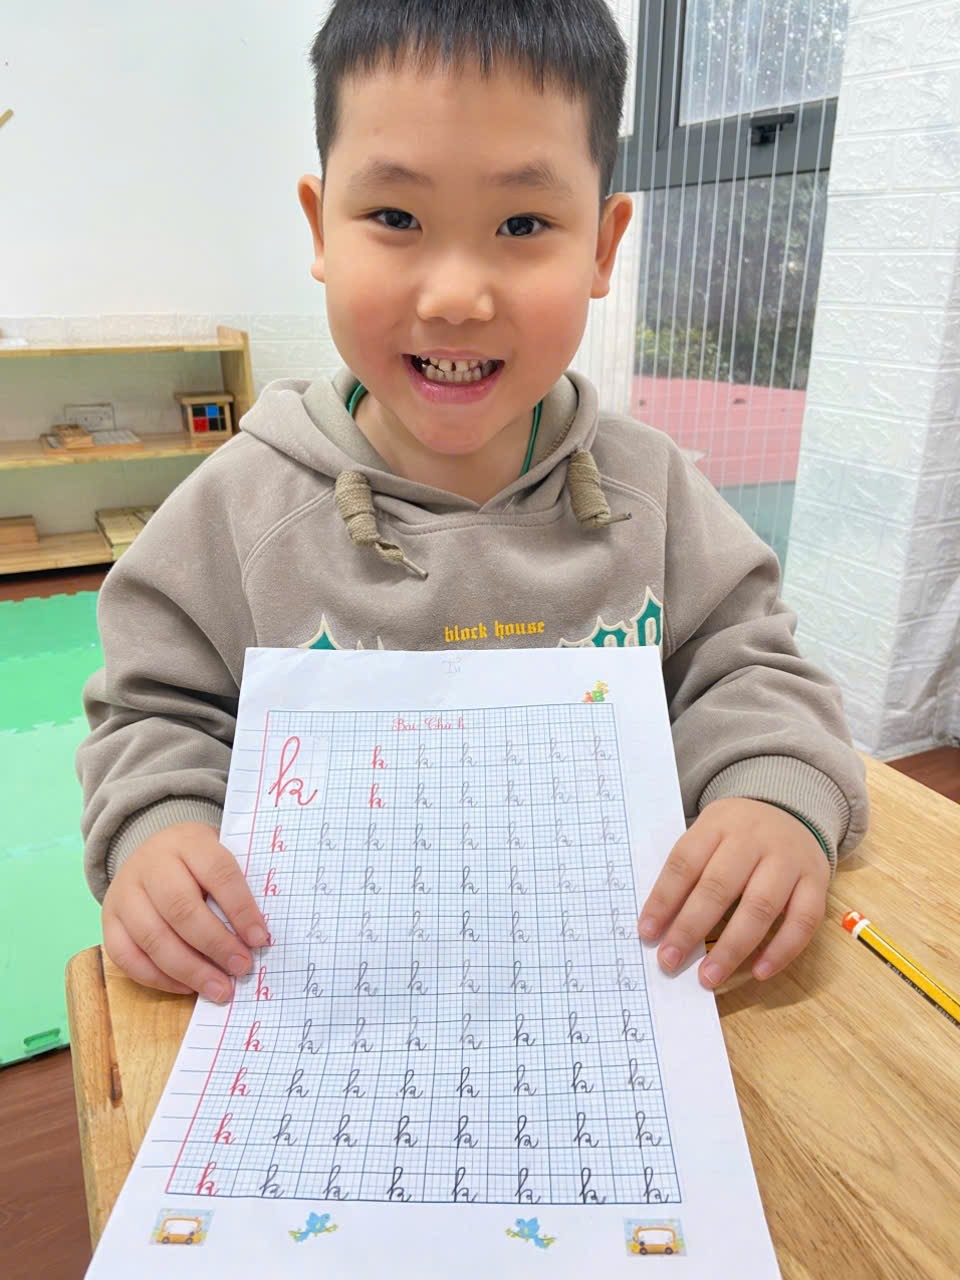 block house
Bài Chữ k
k
k k k k k k
k k k k k k
k k k k k k k k
k k k k k k k k
k k k k k k k k
k k k k k k k k
k k k k k k k k
k k k k k k k k
k k k k k k k k
k k k k k k k k